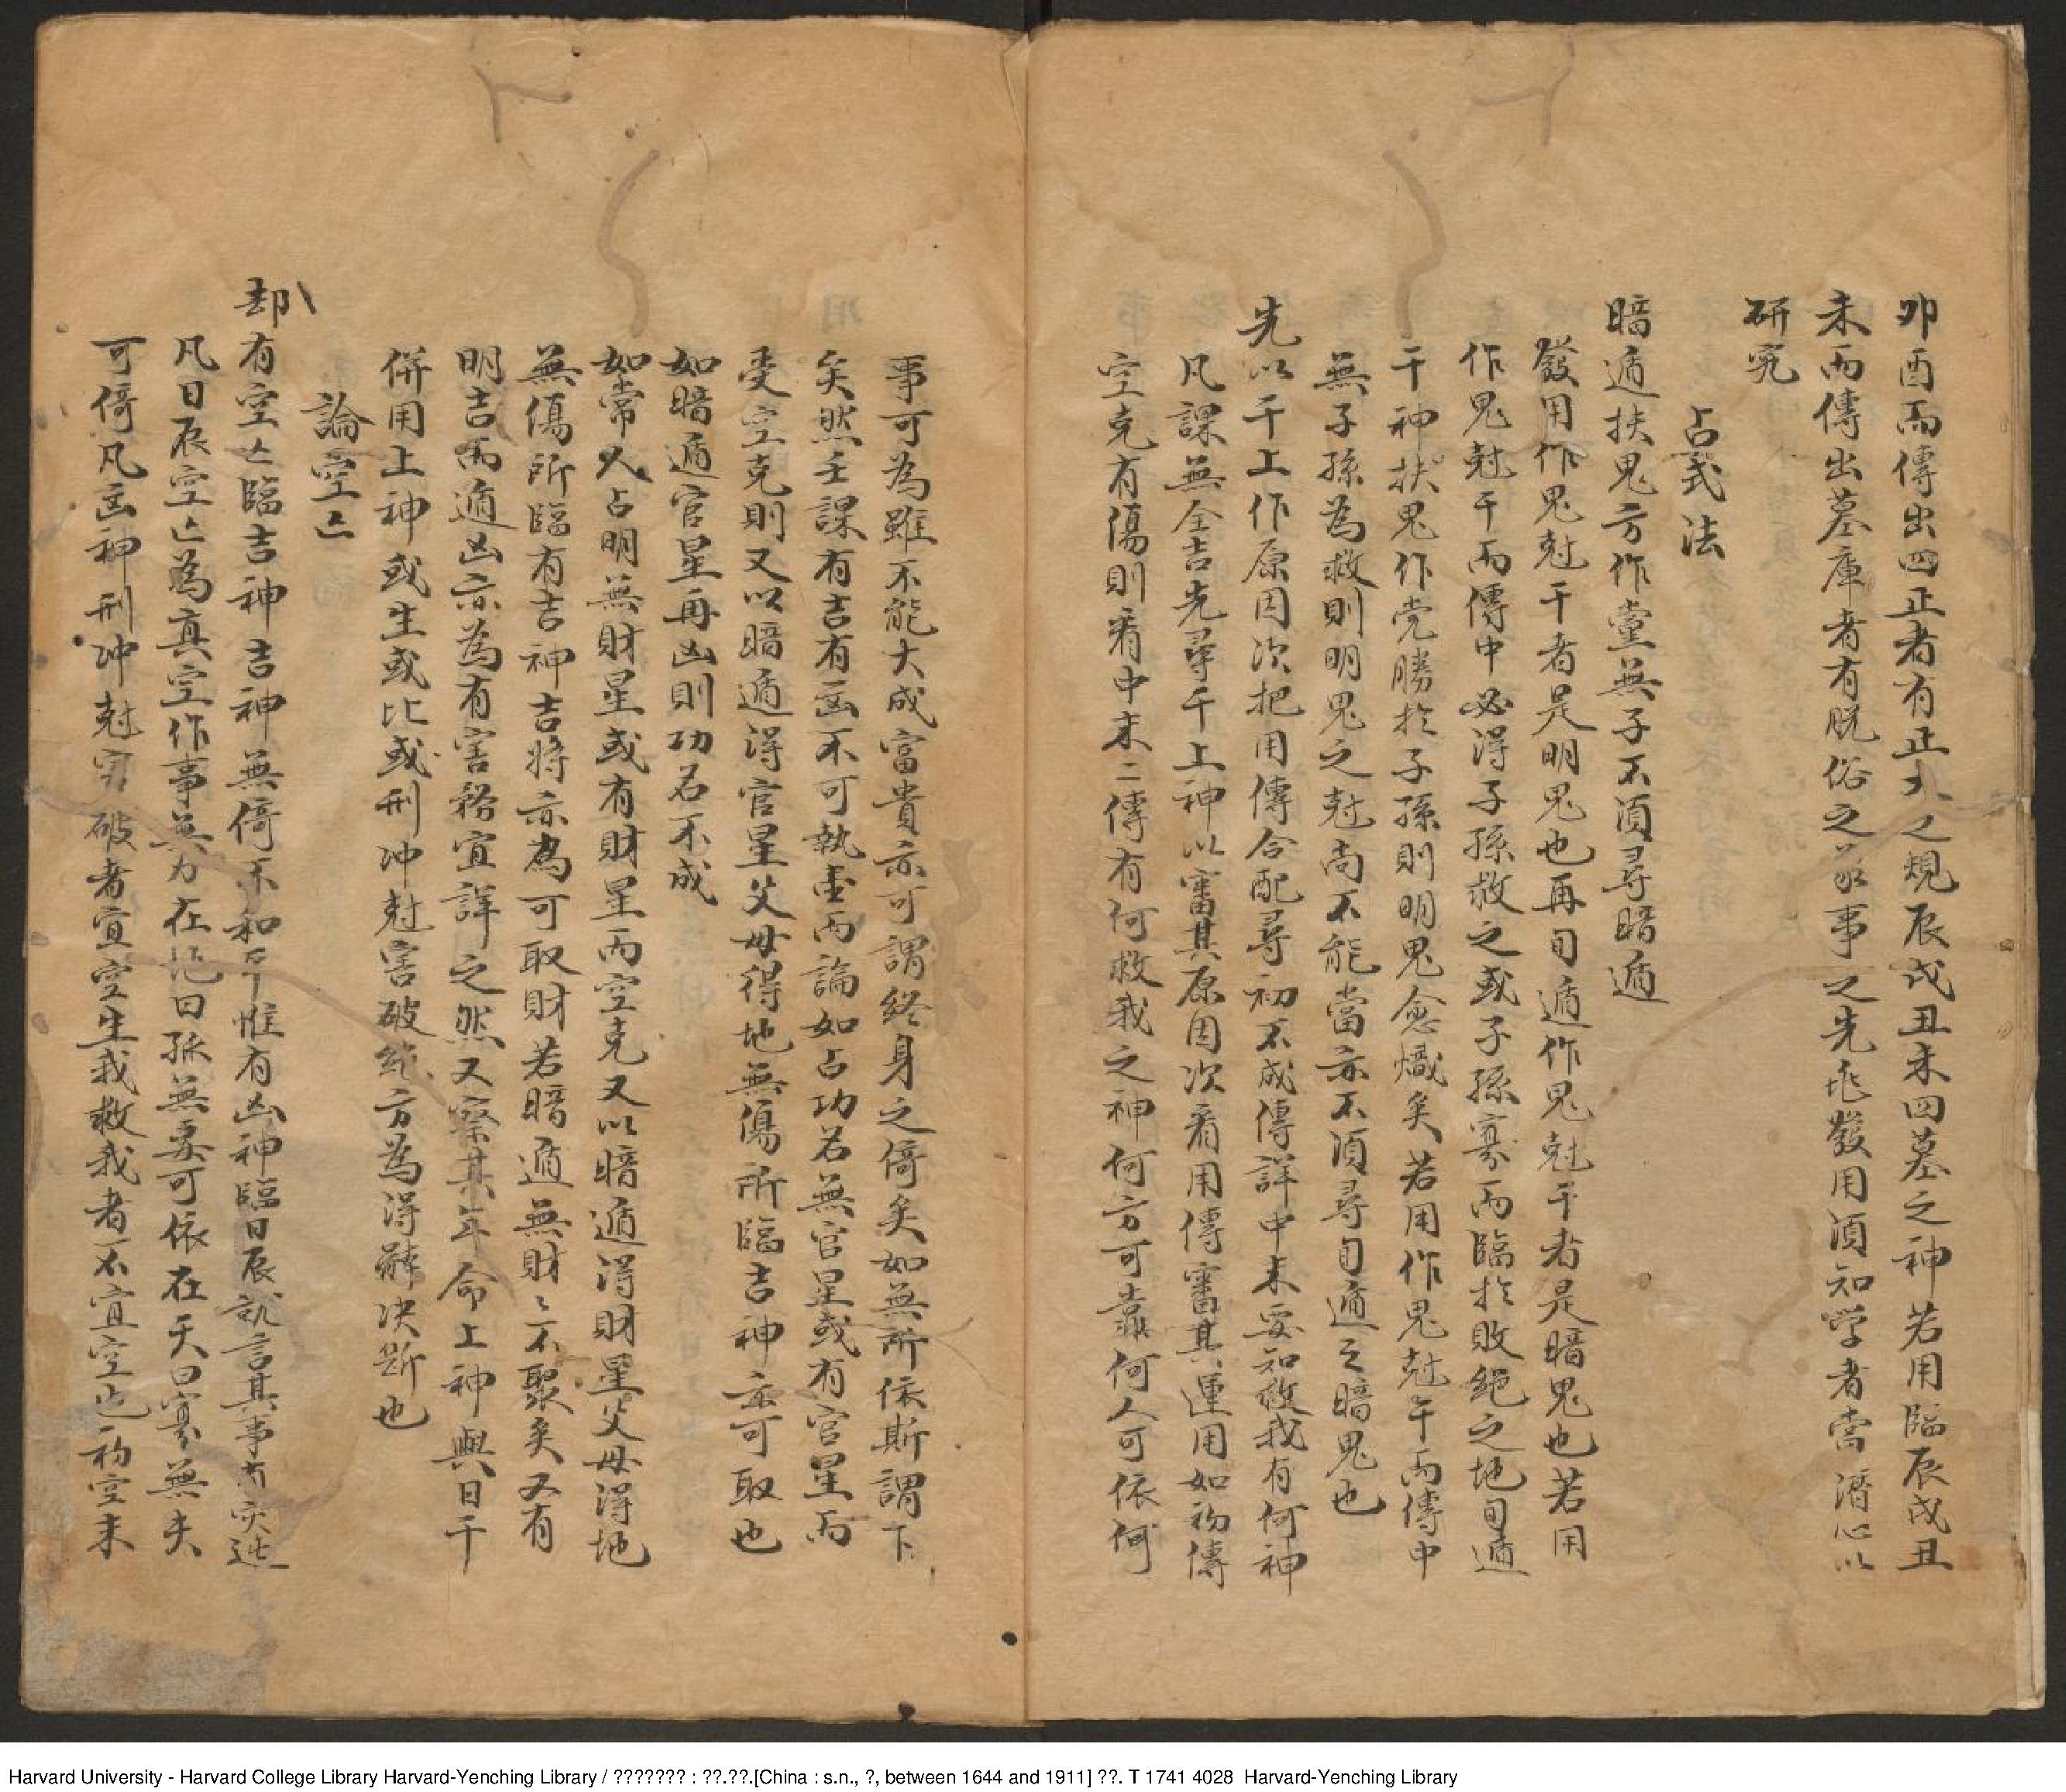 卯酉而傳出四正者有正大之規辰戌丑未四墓之神若用臨辰戌丑
未而傳出墓庫者有脫俗之家事之先兆發用須知学者當潛心以
研究
占式法
暗遁扶鬼方作黨無子不須尋暗遁
發用作鬼尅干者是明鬼也再旬遁作鬼尅干者是暗鬼也若用
作鬼尅干而傳中必得子孫救之或子孫寡而臨於敗絕之地旬遁
干神扶鬼作党勝於子孫則明鬼愈熾矣若用作鬼尅干而傳中
無子孫為救則明鬼之尅尚不能當亦不須尋旬遁之暗鬼也
先以干上作原因次把用傳合配尋初不成傳詳中末要知救我有何神
凡課無全吉先尋干上神以審其原因次看用傳審其運用如初傳
空克有傷則看中末二傳有何救我之神何方可靠何人可依何
事可為雖不能大成富貴亦可謂終身之倚矣如無所依斯謂下
矣然壬課有吉有凶不可執壹而論如占功名無官星或有官星而
受空克則又以暗遁得官星父母得地無傷所臨吉神亦可取也
如暗遁官星再凶則功名不成
如常人占明無財星或有財星而空克又以暗遁得財星父母得地
無傷所臨有吉神吉將亦為可取財若暗遁無財〻不聚矣又有
明吉而遁凶亦為有害務宜詳之然又察其年命上神與日干
併用上神或生或比或刑冲尅害破絕方為得辭决斷也
論空亡
却有空亡臨吉神吉神無倚不和平惟有凶神臨日辰就言其事有災迍
凡日辰空亡為真空作事無力在地曰孤無妻可依在天曰寡無夫
可倚凡凶神刑冲尅害破者宜空生我救我者不宜空也初空末
Harvard University - Harvard College Library Harvard-Yenching Library / ??????? : ??.??.[China : s.n., ?, between 1644 and 1911] ??. T 1741 4028 Harvard-Yenching Library